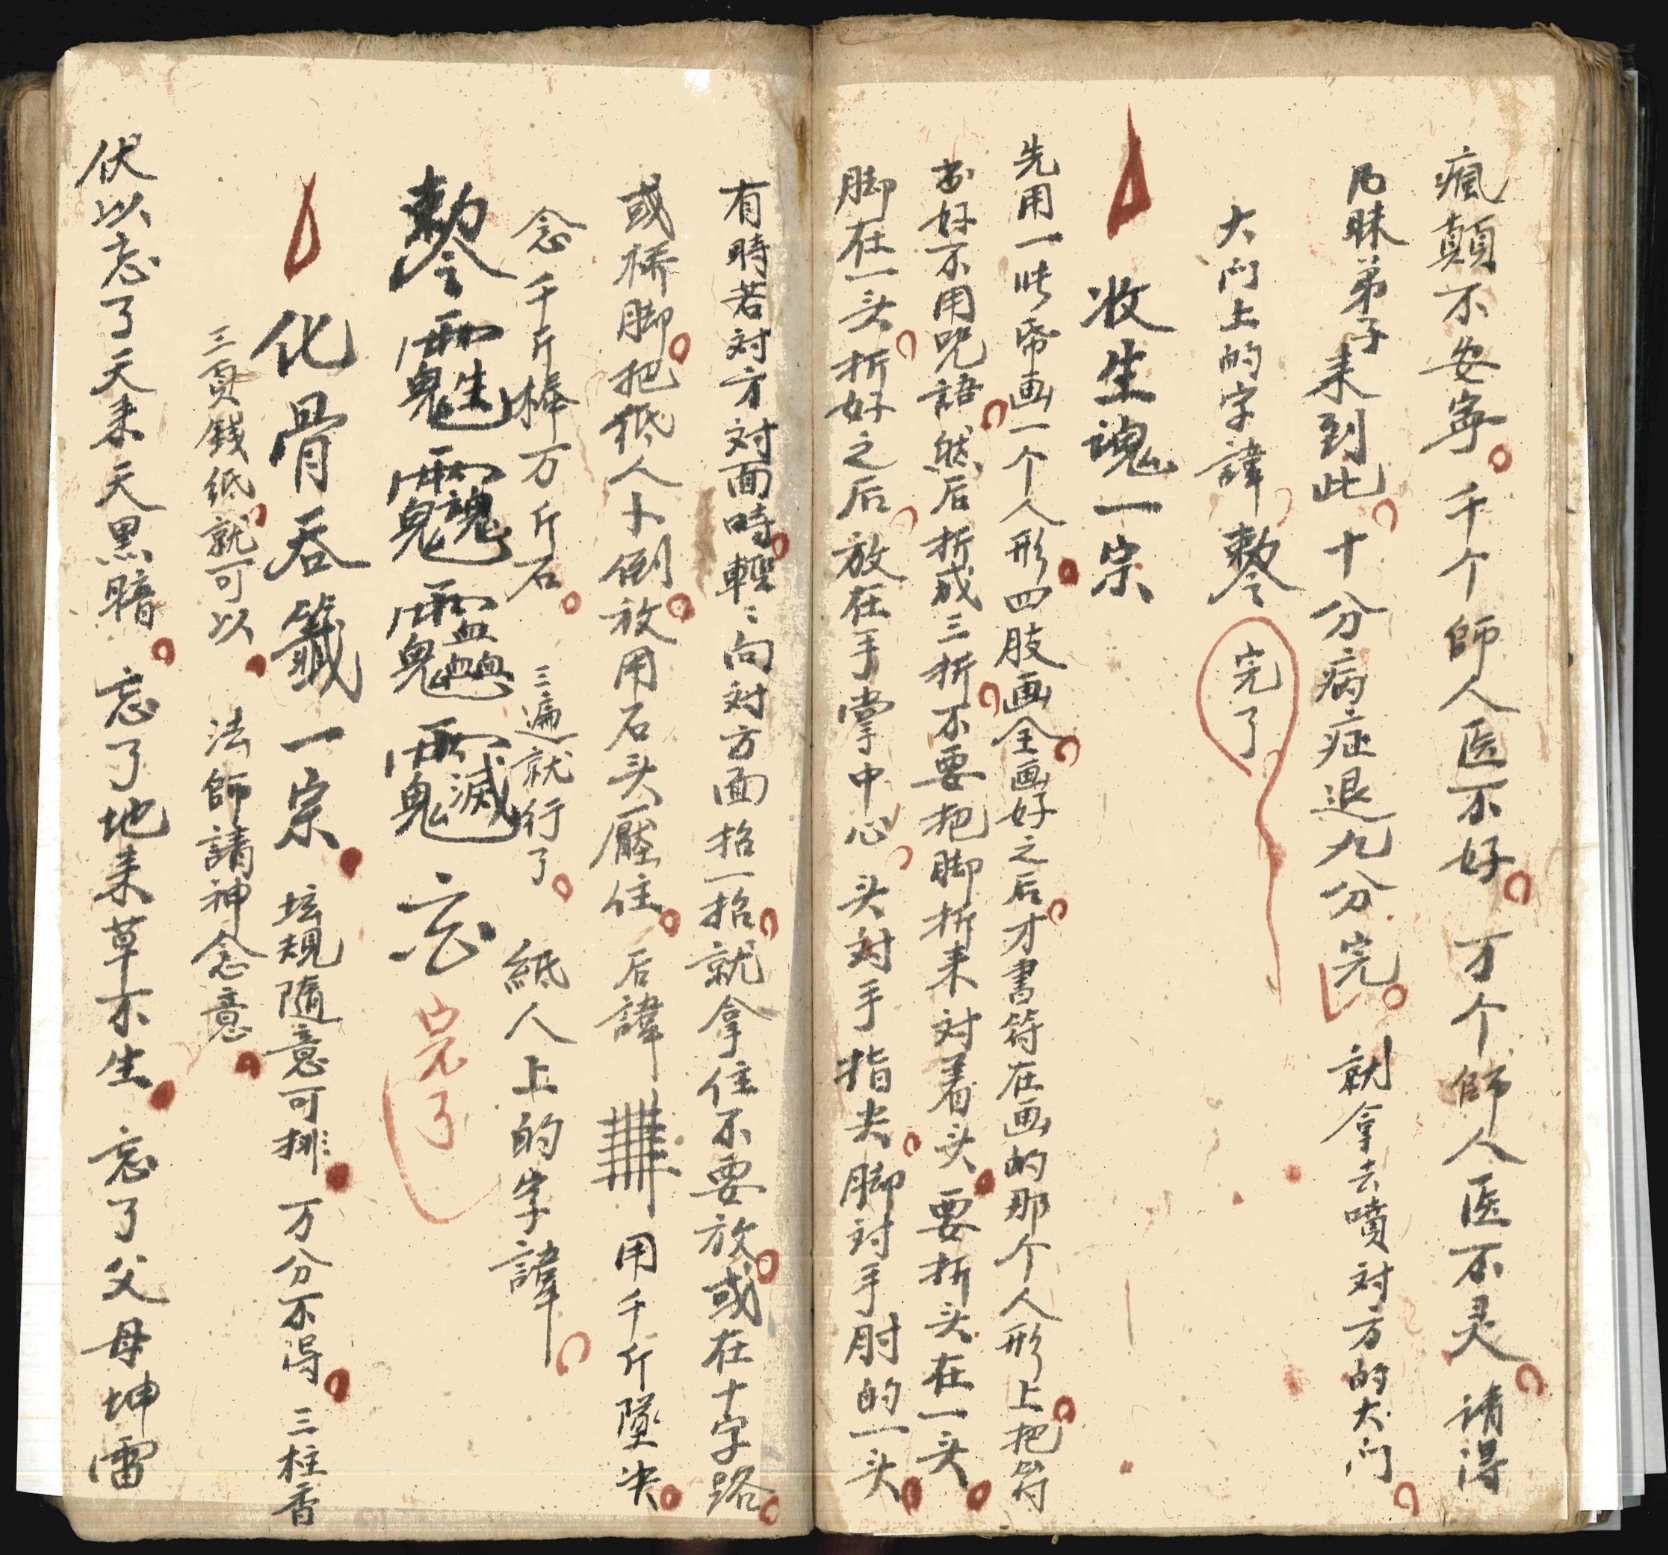 瘋顛不安寧 千个師人医不好 万个師人医不灵 请得
凡昧弟子来到此 十分病症退九分完 就拿去噴对方的大门
大门上的字諱 完了
收生魂一宗
先用一张帋画一个人形四肢画全画好之后才書符在画的那个人形上把符
画好不用咒語然后折成三折不要把脚折来对着头要折头在一头
脚在一头折好之后放在手掌中心 头对手指尖脚对手肘的一头
有時若对方对面時輕々向对方面招一招就拿住不要放或在十字路
或桥脚把纸人卜倒放用石头壓住 后諱 用千斤墜尖
念千斤棒万斤石 三遍就行了 紙人上的字諱
完了
化骨吞籤一宗 坛规隨意可排 万分不得 三柱香
三頁錢纸就可以 法師請神念意
伏以忘了天来天黑暗 忘了地来草不生 忘了父母坤雷